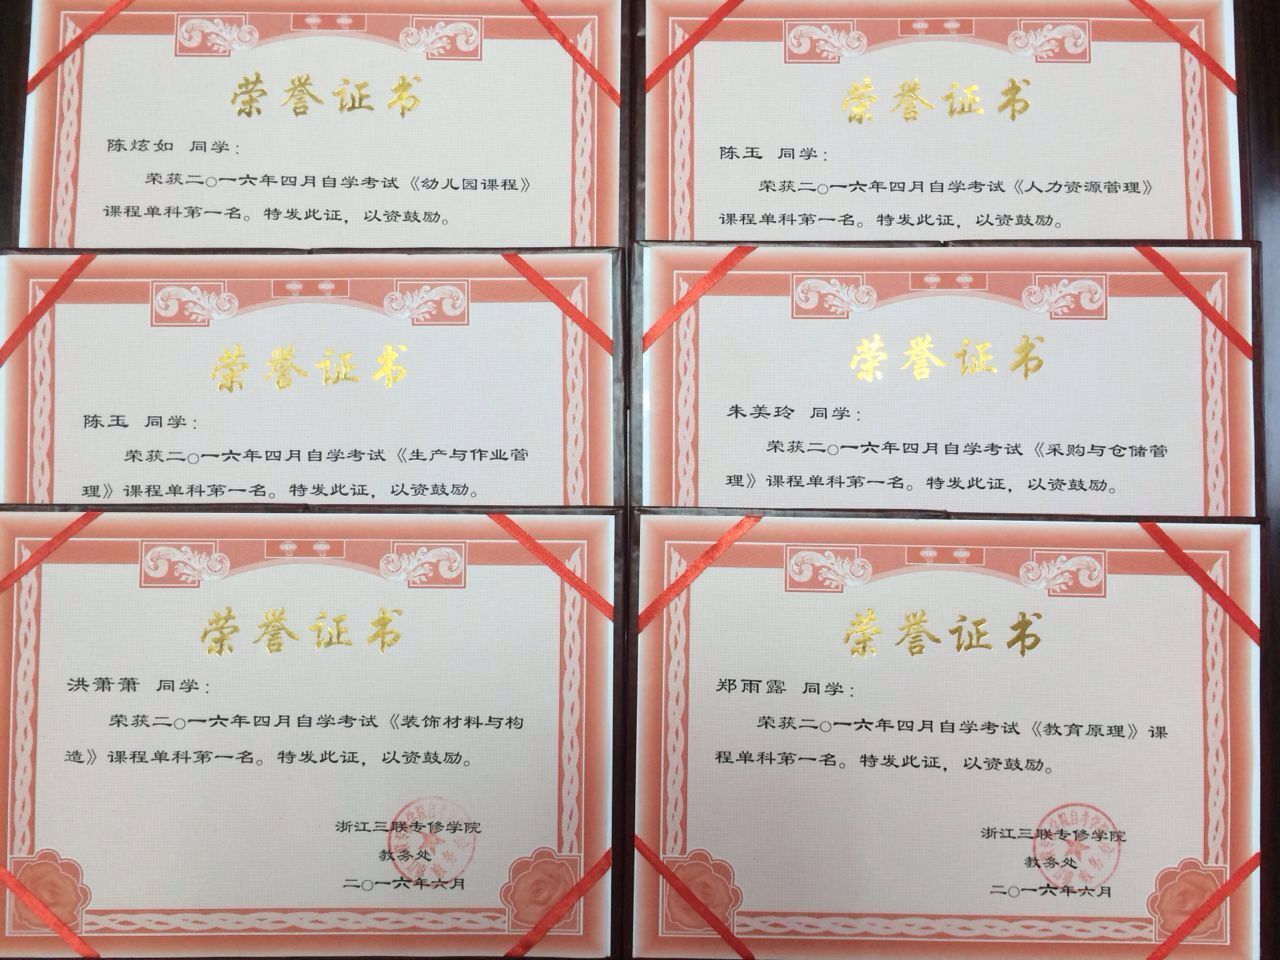 荣誉证书
陈炫如 同学：
荣获二○一六年四月自学考试《幼儿园课程》
课程单科第一名。特发此证，以资鼓励。
荣誉证书
陈玉 同学：
荣获二○一六年四月自学考试《人力资源管理》
课程单科第一名。特发此证，以资鼓励。
荣誉证书
陈玉 同学：
荣获二○一六年四月自学考试《生产与作业管
理》课程单科第一名。特发此证，以资鼓励。
荣誉证书
朱美玲 同学：
荣获二○一六年四月自学考试《采购与仓储管
理》课程单科第一名。特发此证，以资鼓励。
荣誉证书
洪萧萧 同学：
荣获二○一六年四月自学考试《装饰材料与构
造》课程单科第一名。特发此证，以资鼓励。
浙江三联专修学院
教务处
二○一六年六月
荣誉证书
郑雨露 同学：
荣获二○一六年四月自学考试《教育原理》课
程单科第一名。特发此证，以资鼓励。
浙江三联专修学院
教务处
二○一六年六月